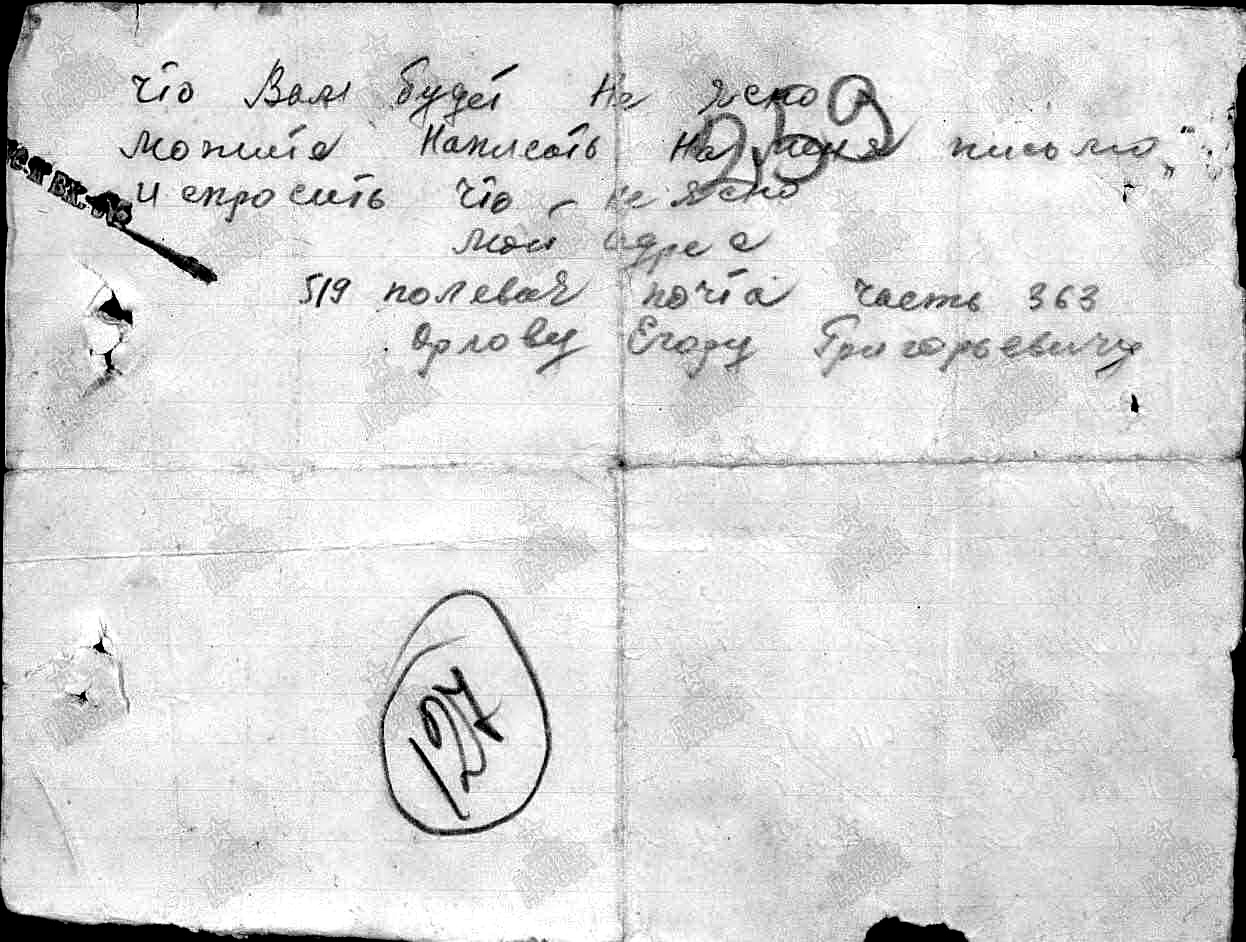 что Вам будет не ясно
можите написать на меня письмо
и спросить что - не ясно
мой адрес
519 полевая почта часть 363
Орлову Егору Григорьевичу
259
127